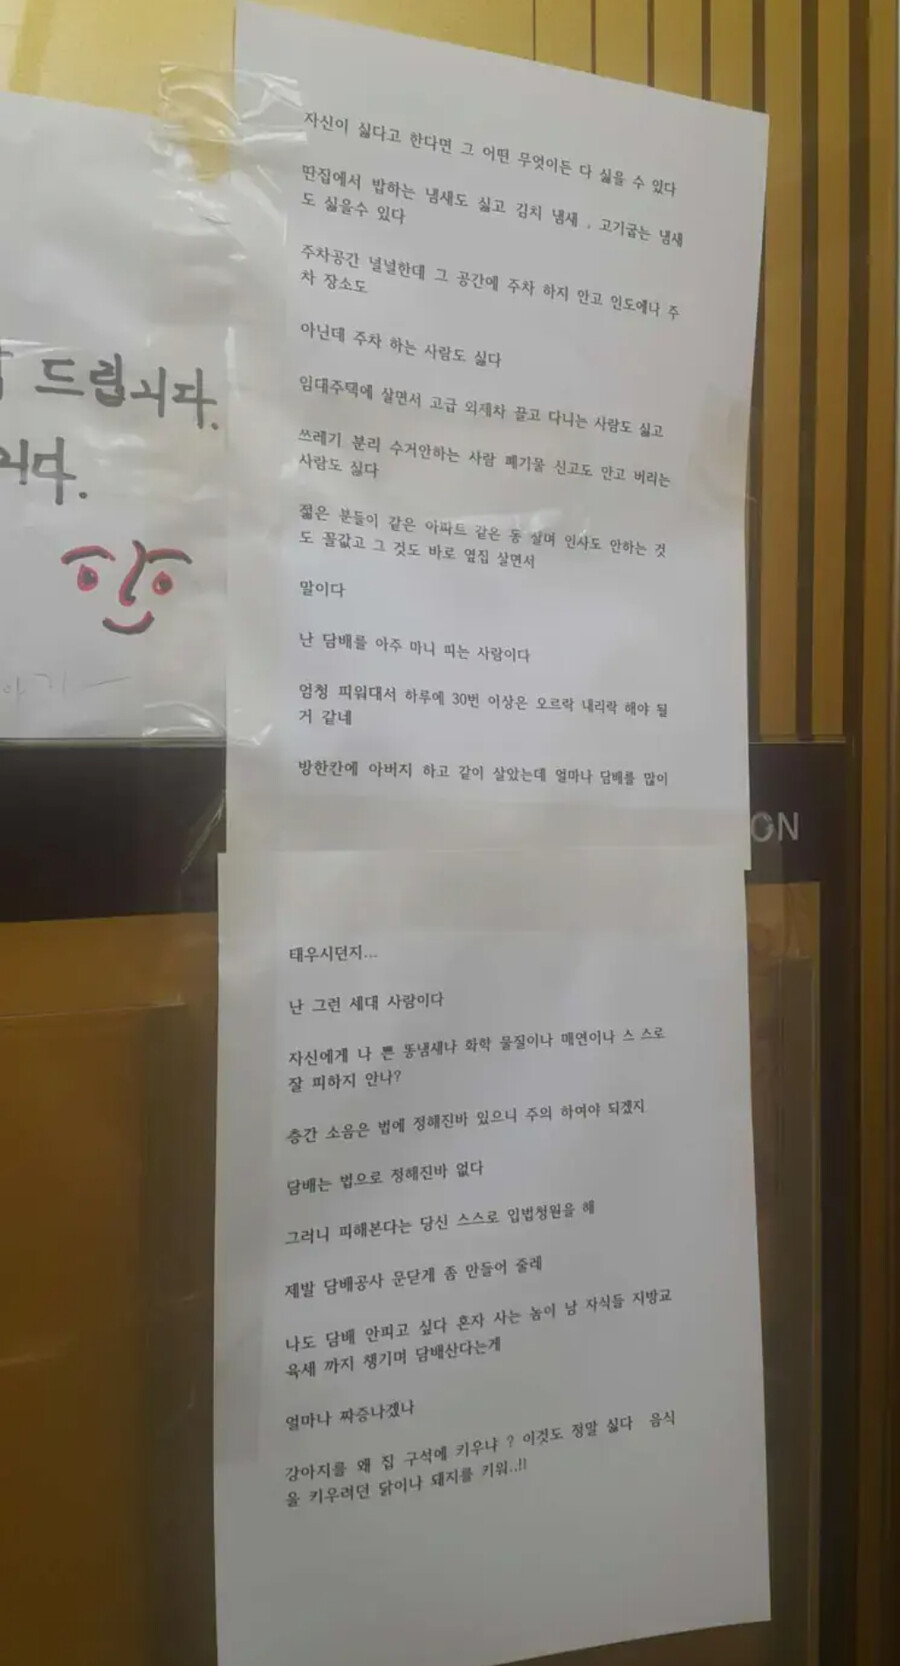 드립니다.
니다.
자신이 싫다고 한다면 그 어떤 무엇이든 다 싫을 수 있다
딴집에서 밥하는 냄새도 싫고 김치 냄새 , 고기굽는 냄새
도 싫을수 있다
주차공간 널널한데 그 공간에 주차 하지 안고 인도에나 주
차 장소도
아닌데 주차 하는 사람도 싫다
임대주택에 살면서 고급 외제차 끌고 다니는 사람도 싫고
쓰레기 분리 수거안하는 사람 폐기물 신고도 안고 버리는
사람도 싫다
젊은 분들이 같은 아파트 같은 동 살며 인사도 안하는 것
도 꼴값고 그 것도 바로 옆집 살면서
말이다
난 담배를 아주 마니 피는 사람이다
엄청 피워대서 하루에 30번 이상은 오르락 내리락 해야 될
거 같네
방한칸에 아버지 하고 같이 살았는데 얼마나 담배를 많이
ON
태우시던지...
난 그런 세대 사람이다
자신에게 나 쁜 똥냄새나 화학 물질이나 매연이나 스 스로
잘 피하지 안나?
층간 소음은 법에 정해진바 있으니 주의 하여야 되겠지
담배는 법으로 정해진바 없다
그러니 피해본다는 당신 스스로 입법청원을 해
제발 담배공사 문닫게 좀 만들어 줄레
나도 담배 안피고 싶다 혼자 사는 놈이 남 자식들 지방교
육세 까지 챙기며 담배산다는게
얼마나 짜증나겠나
강아지를 왜 집 구석에 키우냐 ? 이것도 정말 싫다 음식
을 키우려던 닭이나 돼지를 키워..!!